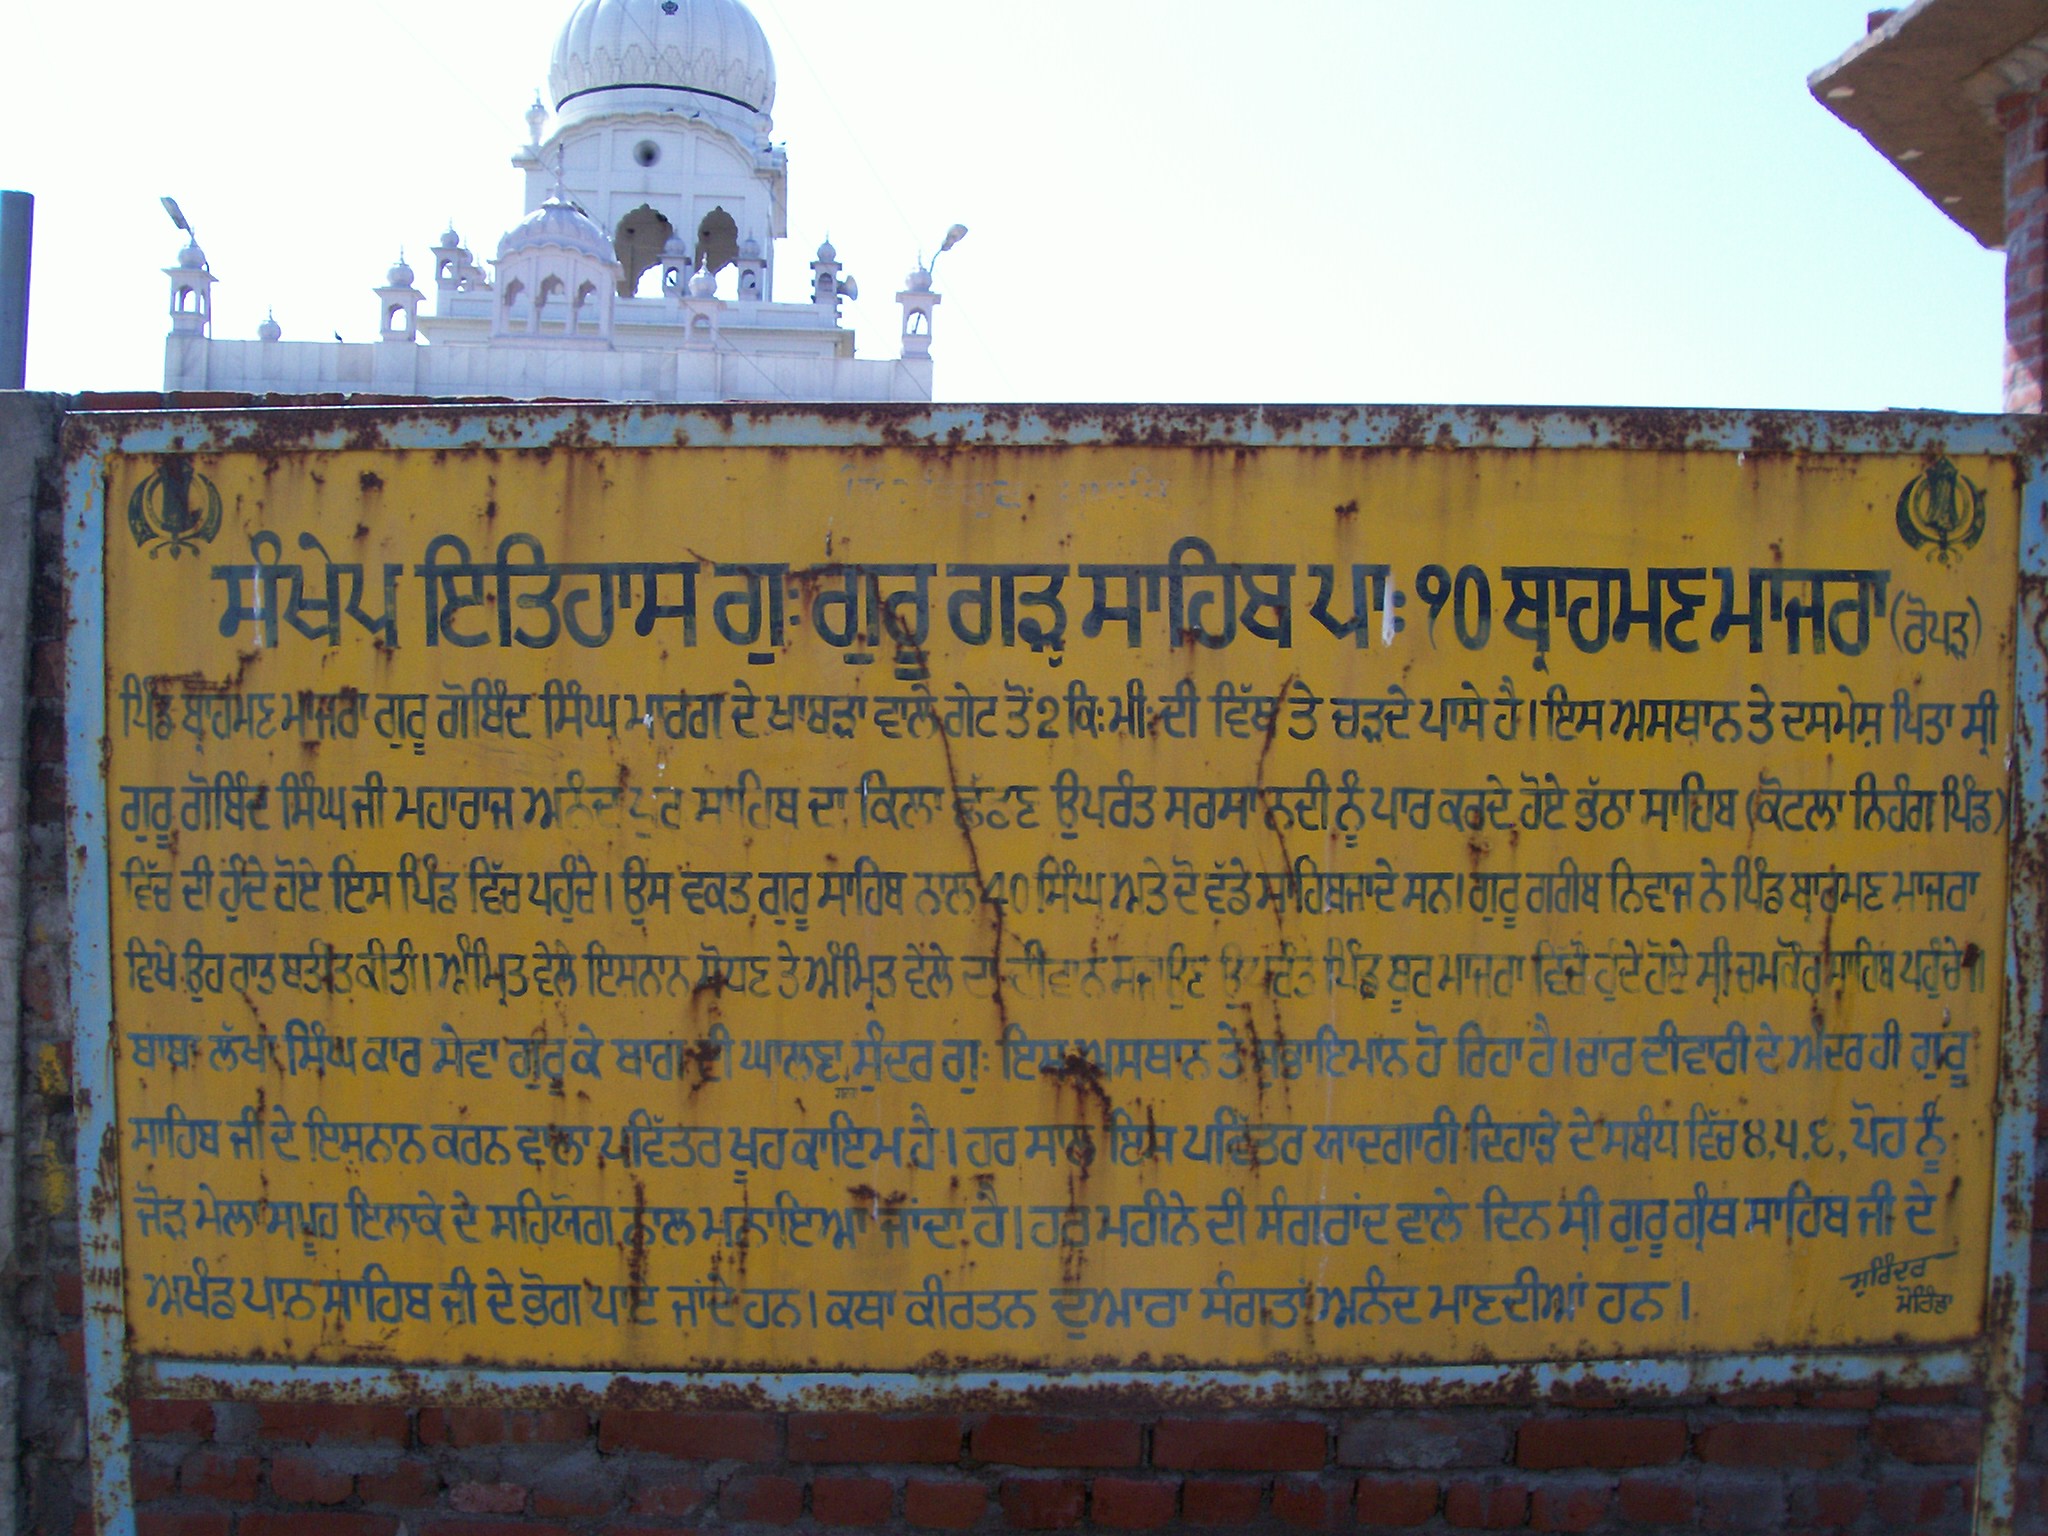 ਸੰਖੇਪ ਇਤਿਹਾਸ ਗੁ: ਗੁਰੂ ਗੜ੍ਹ ਸਾਹਿਬ ਪਾ: ੧੦ ਬ੍ਰਾਹਮਣ ਮਾਜਰਾ (ਰੋਪੜ)
ਪਿੰਡ ਬ੍ਰਾਹਮਣ ਮਾਜਰਾ ਗੁਰੂ ਗੋਬਿੰਦ ਸਿੰਘ ਮਾਰਗ ਦੇ ਖਾਬੜਾ ਵਾਲੇ ਗੇਟ ਤੋਂ 2 ਕਿ: ਮੀ: ਦੀ ਵਿੱਥ ਤੇ ਚੜ੍ਹਦੇ ਪਾਸੇ ਹੈ। ਇਸ ਅਸਥਾਨ ਤੇ ਦਸਮੇਸ਼ ਪਿਤਾ ਸ੍ਰੀ
ਗੁਰੂ ਗੋਬਿੰਦ ਸਿੰਘ ਜੀ ਮਹਾਰਾਜ ਅਨੰਦਪੁਰ ਸਾਹਿਬ ਦਾ ਕਿਲਾ ਛੱਡਣ ਉਪਰੰਤ ਸਰਸਾ ਨਦੀ ਨੂੰ ਪਾਰ ਕਰਦੇ ਹੋਏ ਭੱਠਾ ਸਾਹਿਬ (ਕੋਟਲਾ ਨਿਹੰਗ ਪਿੰਡ)
ਵਿੱਚ ਦੀ ਹੁੰਦੇ ਹੋਏ ਇਸ ਪਿੰਡ ਵਿੱਚ ਪਹੁੰਚੇ। ਉਸ ਵਕਤ ਗੁਰੂ ਸਾਹਿਬ ਨਾਲ 40 ਸਿੰਘ ਅਤੇ ਦੋ ਵੱਡੇ ਸਾਹਿਬਜਾਦੇ ਸਨ। ਗੁਰੂ ਗਰੀਬ ਨਿਵਾਜ ਨੇ ਪਿੰਡ ਬ੍ਰਾਹਮਣ ਮਾਜਰਾ
ਵਿਖੇ ਉਹ ਰਾਤ ਬਤੀਤ ਕੀਤੀ। ਅੰਮ੍ਰਿਤ ਵੇਲੇ ਇਸਨਾਨ ਸੋਧਣ ਤੇ ਅੰਮ੍ਰਿਤ ਵੇਲੇ ਦਾ ਦੀਵਾਨ ਸਜਾਉਣ ਉਪਰੰਤ ਪਿੰਡ ਬੂਰ ਮਾਜਰਾ ਵਿੱਚੋਂ ਹੁੰਦੇ ਹੋਏ ਸ੍ਰੀ ਚਮਕੌਰ ਸਾਹਿਬ ਪਹੁੰਚੇ॥
ਬਾਬਾ ਲੱਖਾ ਸਿੰਘ ਕਾਰ ਸੇਵਾ ਗੁਰੂ ਕੇ ਬਾਗ ਦੀ ਘਾਲਣਾ ਸੁੰਦਰ ਗੁ: ਇਸ ਅਸਥਾਨ ਤੇ ਸੁਭਾਇਮਾਨ ਹੋ ਰਿਹਾ ਹੈ। ਚਾਰ ਦੀਵਾਰੀ ਦੇ ਅੰਦਰ ਹੀ ਗੁਰੂ
ਸਾਹਿਬ ਜੀ ਦੇ ਇਸਨਾਨ ਕਰਨ ਵਾਲਾ ਪਵਿੱਤਰ ਖੂਹ ਕਾਇਮ ਹੈ। ਹਰ ਸਾਲ ਇਸ ਪਵਿੱਤਰ ਯਾਦਗਾਰੀ ਦਿਹਾੜੇ ਦੇ ਸਬੰਧ ਵਿੱਚ ੪,੫,੬, ਪੋਹ ਨੂੰ
ਜੋੜ ਮੇਲਾ ਸਮੂਹ ਇਲਾਕੇ ਦੇ ਸਹਿਯੋਗ ਨਾਲ ਮਨਾਇਆ ਜਾਂਦਾ ਹੈ। ਹਰ ਮਹੀਨੇ ਦੀ ਸੰਗਰਾਂਦ ਵਾਲੇ ਦਿਨ ਸ੍ਰੀ ਗੁਰੂ ਗ੍ਰੰਥ ਸਾਹਿਬ ਜੀ ਦੇ
ਅਖੰਡ ਪਾਠ ਸਾਹਿਬ ਜੀ ਦੇ ਭੋਗ ਪਾਏ ਜਾਂਦੇ ਹਨ। ਕਥਾ ਕੀਰਤਨ ਦੁਆਰਾ ਸੰਗਤਾਂ ਅਨੰਦ ਮਾਣਦੀਆਂ ਹਨ।
ਸੁਰਿੰਦਰ
ਮੋਰਿੰਡਾ